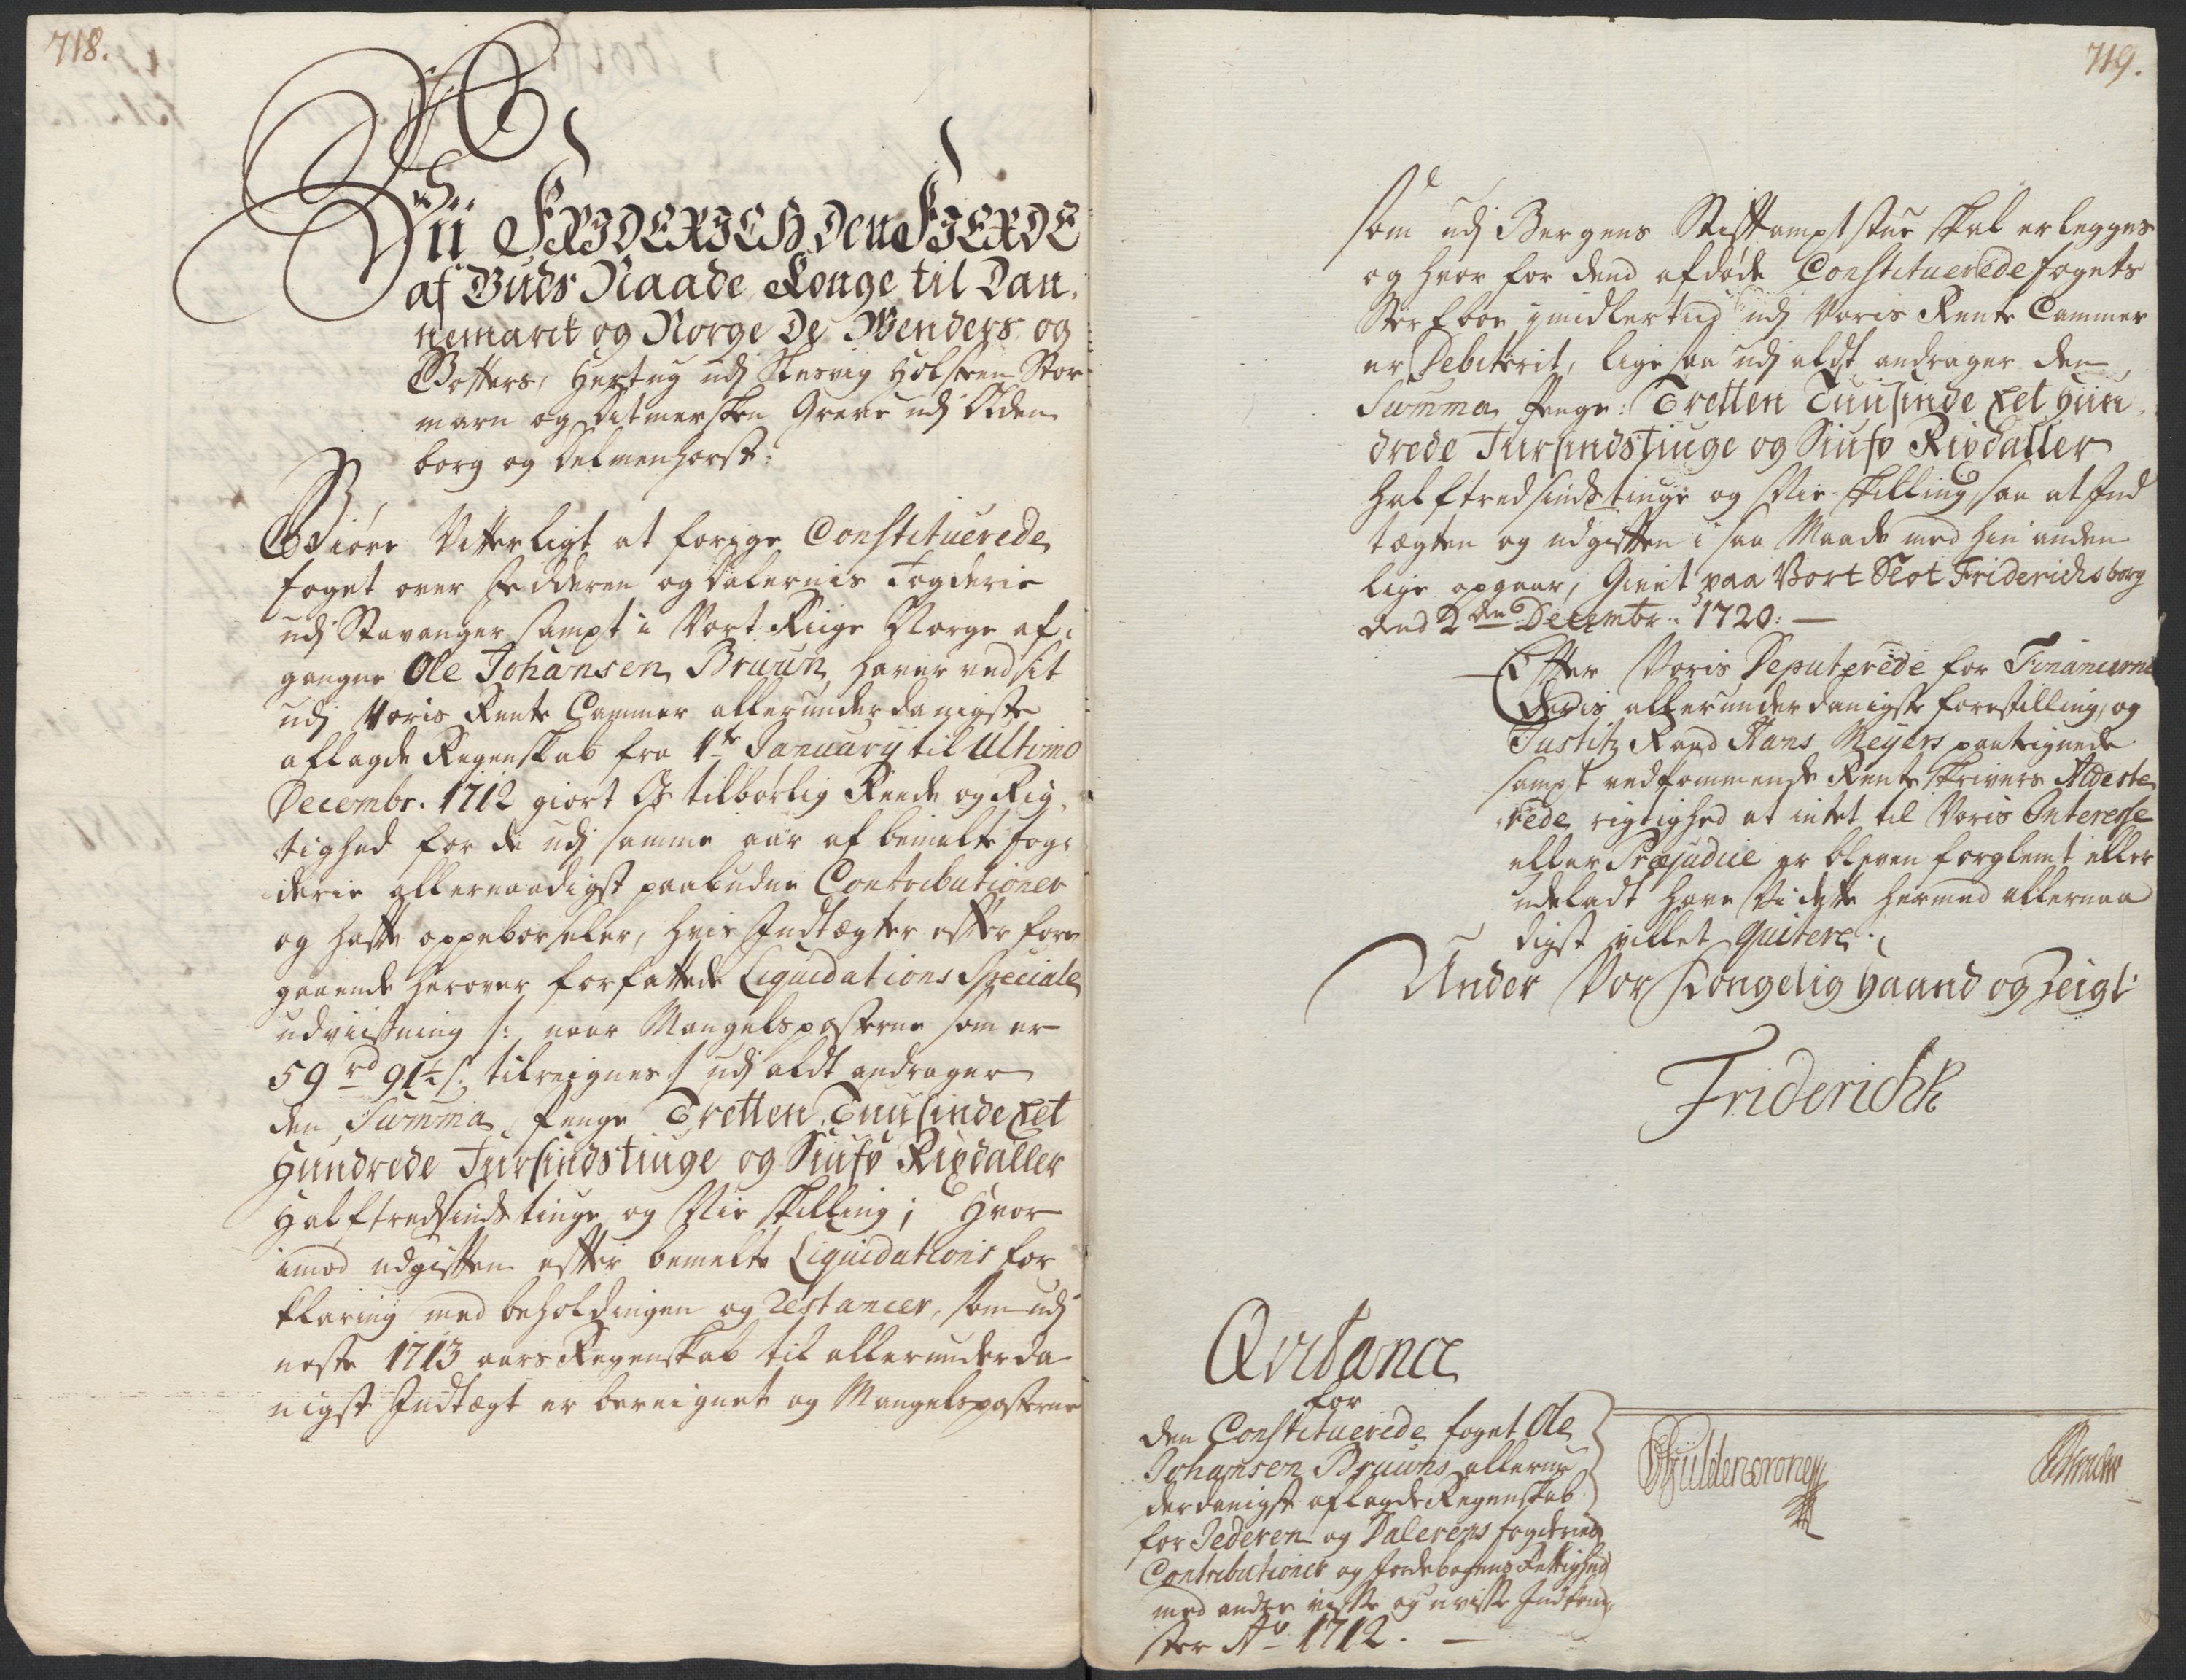 718.
Vii FRIDERICH Den FIERDE
af Guds Naade Konge til Dan,
nemarck og Norge De Wenders og
Gotters, Hertug udj Slesvig Holsten Stor
marn og Ditmersken Greve udj Olden
borg og Delmenhorst:
Giøre Vitterligt at forige Constituerede
foget over Jedderen og Dalernis Fogderie
udj Stavanger Ampt i Vort Riige Norge af,
gangne Ole Johansen Bruun haver ved sit
udj Voris Rente Cammer allerunderdanigste
aflagde Regenskab fra 1te January til Ultimo
Decembr. 1712 giort Os tilbørlig Reede og Rig,
tighed for de udj samme aar af bemelte fog,
derie allernaadigst paabudne Contributioner
og hafte oppebørseler, hvis Indtægter efter fore
gaaende herover forfattede Liquidations Speciale
udviisning /: naar Mangelsposterne som er
59 rd 91½ s: tilreignes :/ udj aldt andrager
den Summa penge Tretten Tuusinde Et
Hundrede Fiirsindstiuge og Siufv Rixdaller
Halftredsindstiuge og Nie skilling; Hvor
imod udgiften efter bemelte Liquidations for
klaring med beholdningen og Restancer, som udj
neste 1713 aars Regenskab til allerunderda
nigst Indtægt er bereignet og Mangelsposterne
719.
som udj Bergens Stiftamptstue skal erlegges
og hvor for dend afdøde Constituerede fogets
Sterfboe imidlertiid udj Voris Rente Cammer
er Debiterit, lige saa udj aldt andrager den
Summa penge: Tretten Tuusinde Et Hun,
drede Fiirsindstiuge og Siufv Rixdaller
halftredsindstiuge og Nie skilling, saa at Ind
tægten og udgiften i saa Maade med hin anden
lige opgaar, Givet paa Vort Slot Friderichsborg
dend 2den Decembr: 1720: —
Efter Voris Deputerede for Financerne
Deris allerunderdanigste forestilling, og
Justitz Raad Hans Meyers paategnede
sampt vedkommende Rente skrivers Atteste
rede rigtighed at intet til Voris Interesse
eller Præjudice er bleven forglemt eller
udeladt have Vi dette hermed allernaa
digst villet quitere.
Under Vor Kongelig Haand og Zeigl:
Friderich R
Qvitance
for
den Constituerede foget Ole
Johansen Bruuns allerun
derdanigst aflagde Regenskab
for Jederen og Dalerens fogderies
Contributioner og Jordebogens Rettighed
med andre visse og uvisse Indkom,
ster Ao 1712. —
Güldencrone